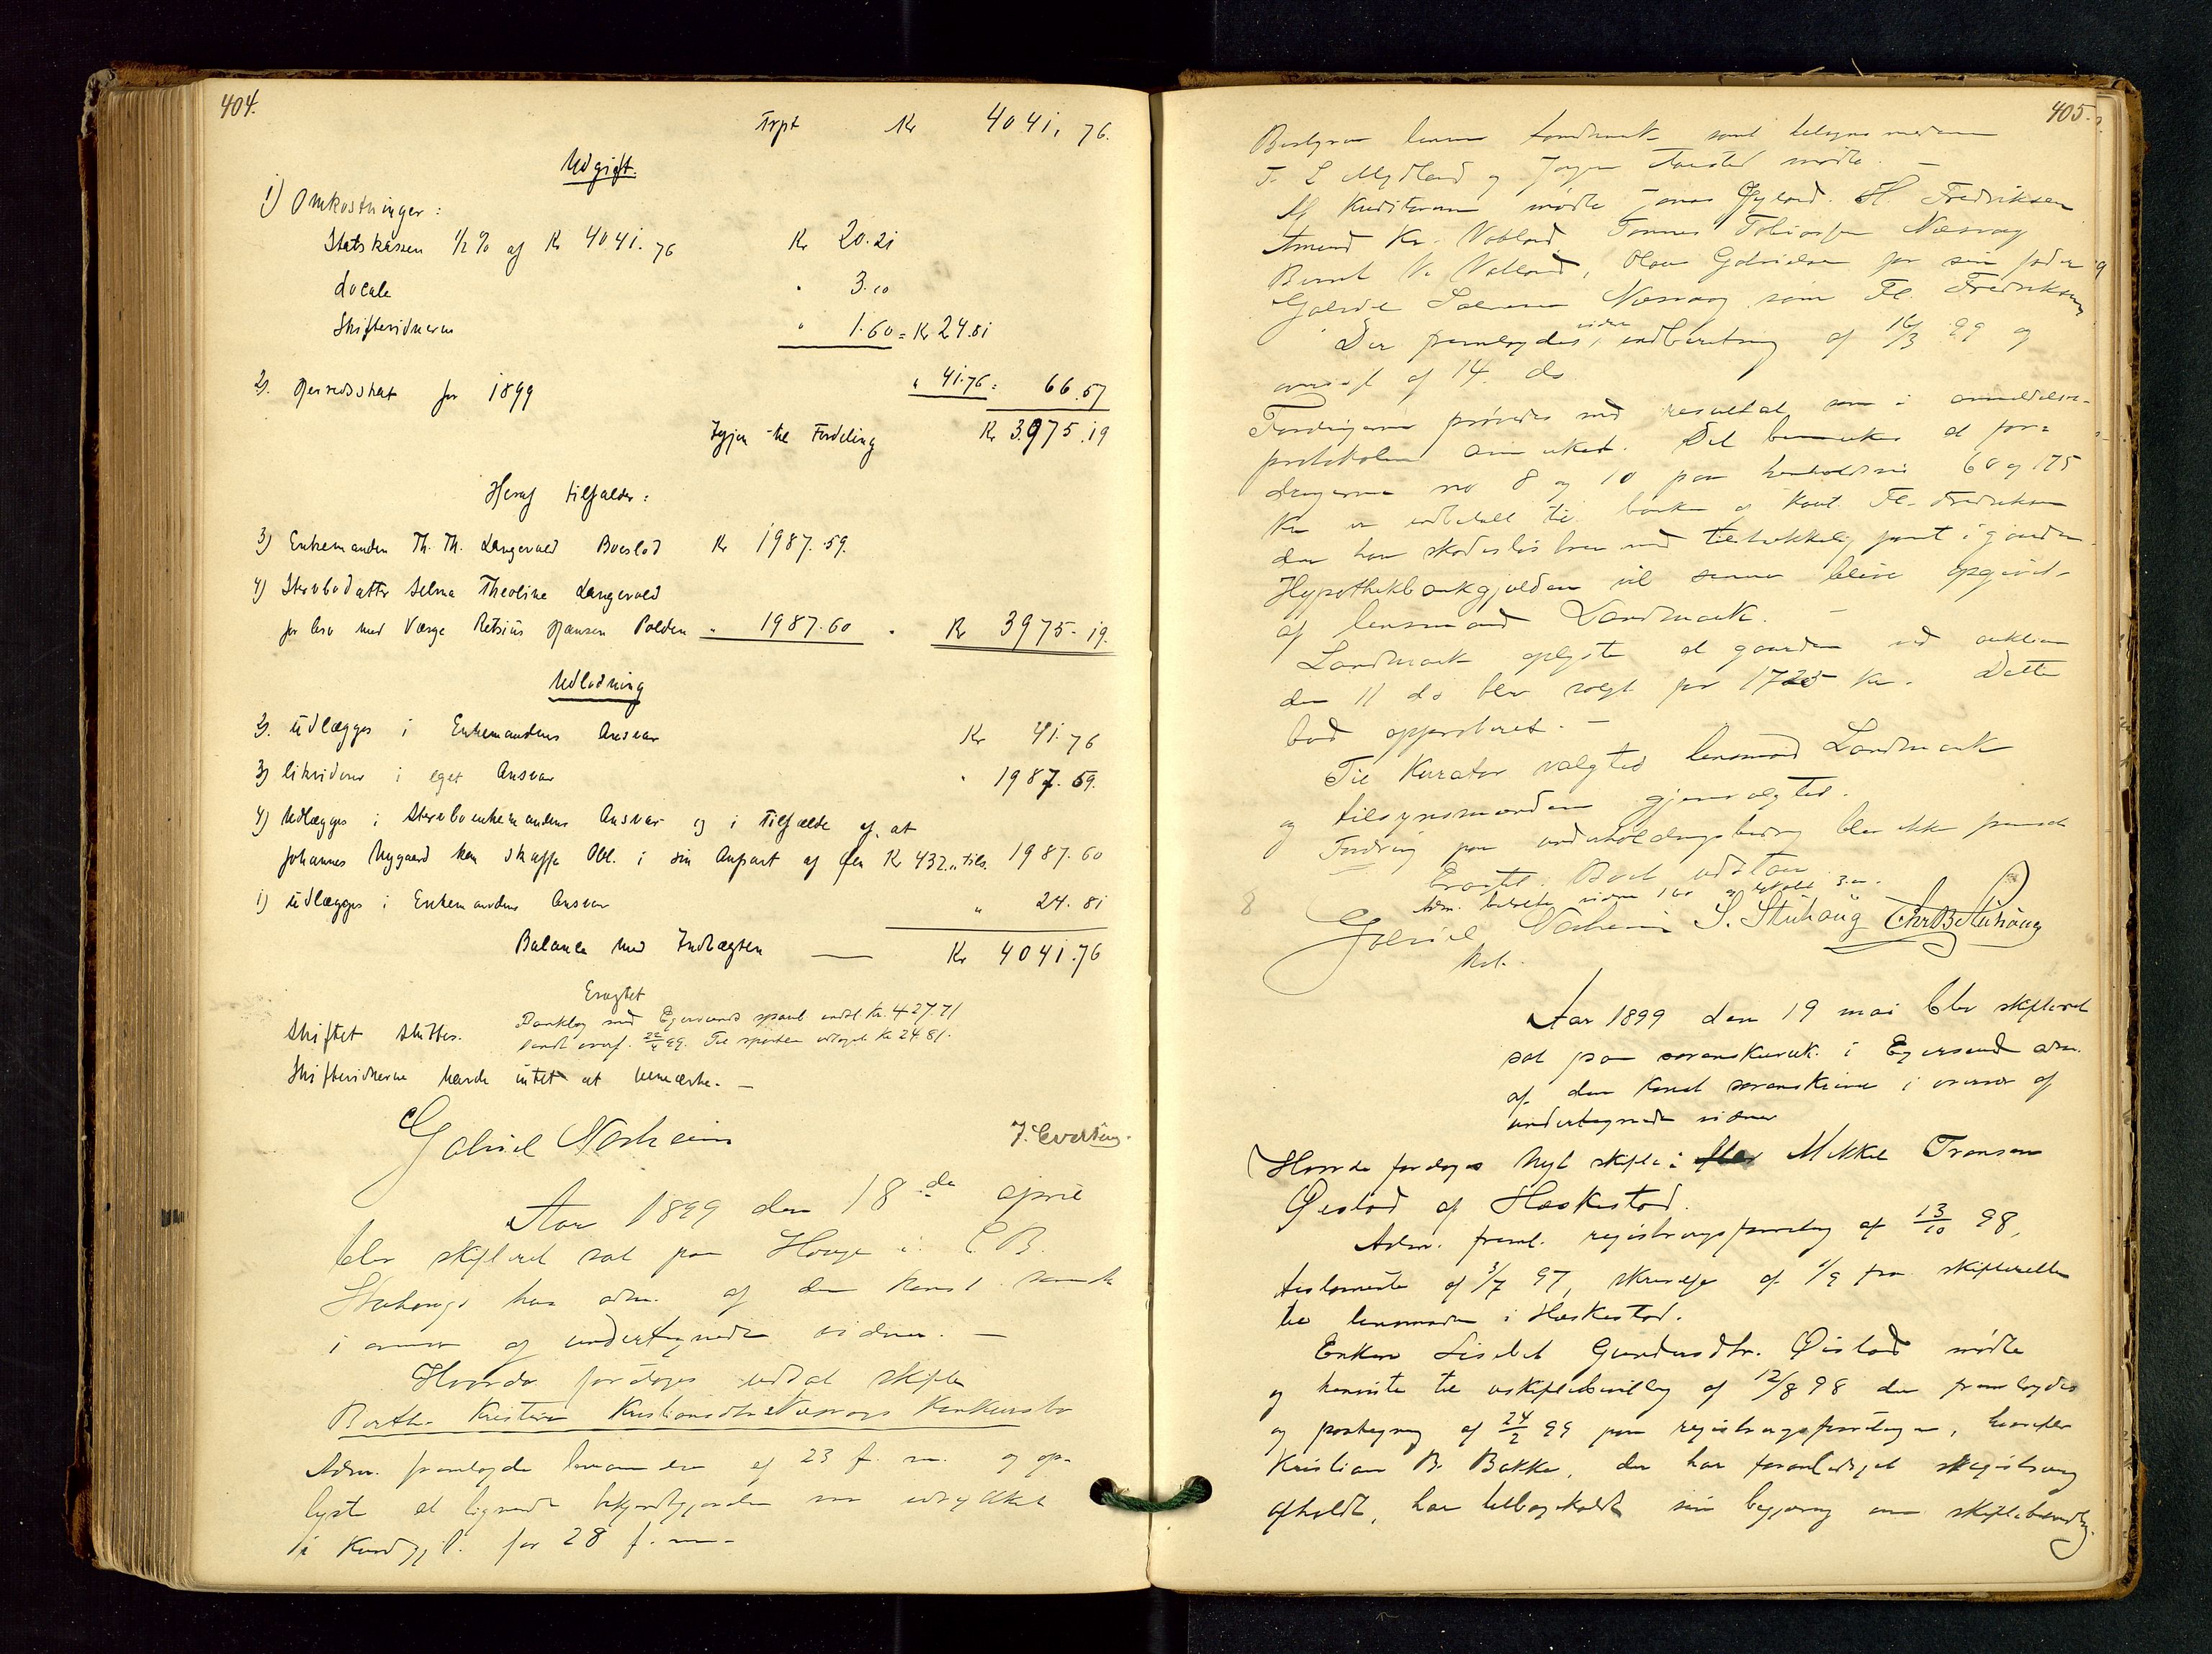 404.
Trpt Kr 4041,76.
Udgift.
1) Omkostninger:
Statskassen 1/2 % af Kr 4041.76 Kr 20.21
Locale " 3.00
Skiftevidnerne " 1.60 = Kr 24.81
2). Herredsskat for 1899 " 41.76 = 66.57
Igjen til Fordeling Kr 3975.19
Heraf tilfalder:
3) Enkemanden Th. Th. Langevald Boeslod Kr 1987.59.
4) Stervbodatter Selma Theoline Langevald
for Arv med Værge Retsius Hansen Polden " 1987.60 " Kr 3975.19.
Udlodning
2). Udlægges i Enkemandens Ansvar Kr 41.76
3) likviderer i eget Ansvar " 1987.59.
4) Udlægges i Stervboenkemandens Ansvar og i Tilfælde af, at
Johannes Nygaard kan skaffe Obl. i sin Anpart af den Kr 432,, tils. 1987.60
1) Udlægges i Enkemandens Ansvar " 24.81
Balance med Indtægten — Kr 4041.76
Eragtet
Skiftet sluttes.
Bankbog med Egersunds spareb. indst Kr. 427.71
sendt overf. 22/4 99. Til sportler udtaget Kr 24.81.
Skiftevidnerne havde intet at bemærke. —
Gabriel Nesheim J. Evertsen.
Aar 1899 den 18de april
blev skifteret sat paa Hauge i C. B.
Stuhaugs hus adm. af den konst. sorensk
i overvær af undertegnede vidner. —
Hvorda foretoges udsat skifte
Berthe Kristine Kristiansdtr Næsvogs Konkursbo
Adm. fremlagde af 23 f. m. og op-
lyste at lignende var indrykket
i Kundgj.t. for 28 f. m. -
405.
Bestyrer lensm Landmark samt tilsynsmedm
T. L. Mydland og Jørgen mødte. —
Af Kreditorerne mødte Jonas Øglænd. Fl. Fredriksen
Amund Kr. Vatland Tønnes Tobiassen Næsvog
Bernt V. Vatland, Olaus Gabrielsen for sin fader og
Gabriel Salvesen Næsvog samt Fl. Fredriksen
Der fremlagdes videre indberetning af 16/3 99 og
oversigt af 14. ds
Fordringerne prøvedes med resultat som i anmeldelses-
protokolen anmerket. Det bemerkes at for-
dringerne no 8 og 10 paa henholdsvis 60 og 175
Kr er indbetalt til banken af Kaut. Fl. Fredriksen
der har skadesløsbrev med tilstrekkelig pant i gaarden.
Hypothekbankgjælden vil senere blive opgivet
af lensmand Landmark.
Landmark oplyste at gaarden ved auktion
den 11 ds blev solgt for 1725 Kr. Dette
bud approberet. —
Til Kurator valgtes lensmand Landmark
og tilsynsmændene gjenvalgtes.
Fordring paa underholdningsbidrag blev ikke fremsat
Eragtet: Boet udstaar.
Adm. betalte vidner 160 og lokale 3.00.
Gabriel Nesheim S. Stuhaug Chr B Stuhaug
kst.
Aar 1899 den 19 mai blev skifteret
sat paa sorenskriverk. i Egersund adm.
af den konst sorenskriver i overvær af
undertegnede vidner
Hvorda foretoges Nyt skifte i Mikkel Tronsen
Øislad af Heskestad.
Adm. freml. registreringsforretng af 13/10 98,
testamente af 3/7 97, skrivelse af 1/9 fra skifteretten
til lensmanden i Heskestad.
Enken Lisebet Gundersdtr. Øislad mødte
og henviste til uskiftebevilling af 12/8 98 der fremlagdes
og paategning af 24/2 99 paa registreringsforretningen, hvorefter
Kristian B. Bakke, der har foranlediget registrering
afholdt, har tilbagekaldt sin begjæring om skiftebehandlg.